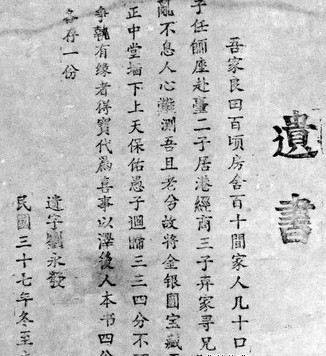 遺書
吾家艮田百頃房舍百十間家人几十口
子任師座赴臺二子居港經商三子弃家尋兄
亂不息人心難測吾且老兮故將金銀圓宝藏
正中堂墻下上天保佑愚子迴歸三三四分不
爭執有缘者得寳代為喜事以澤後人本書四份
各存一份
遺字劉永發
民國三十七年冬至